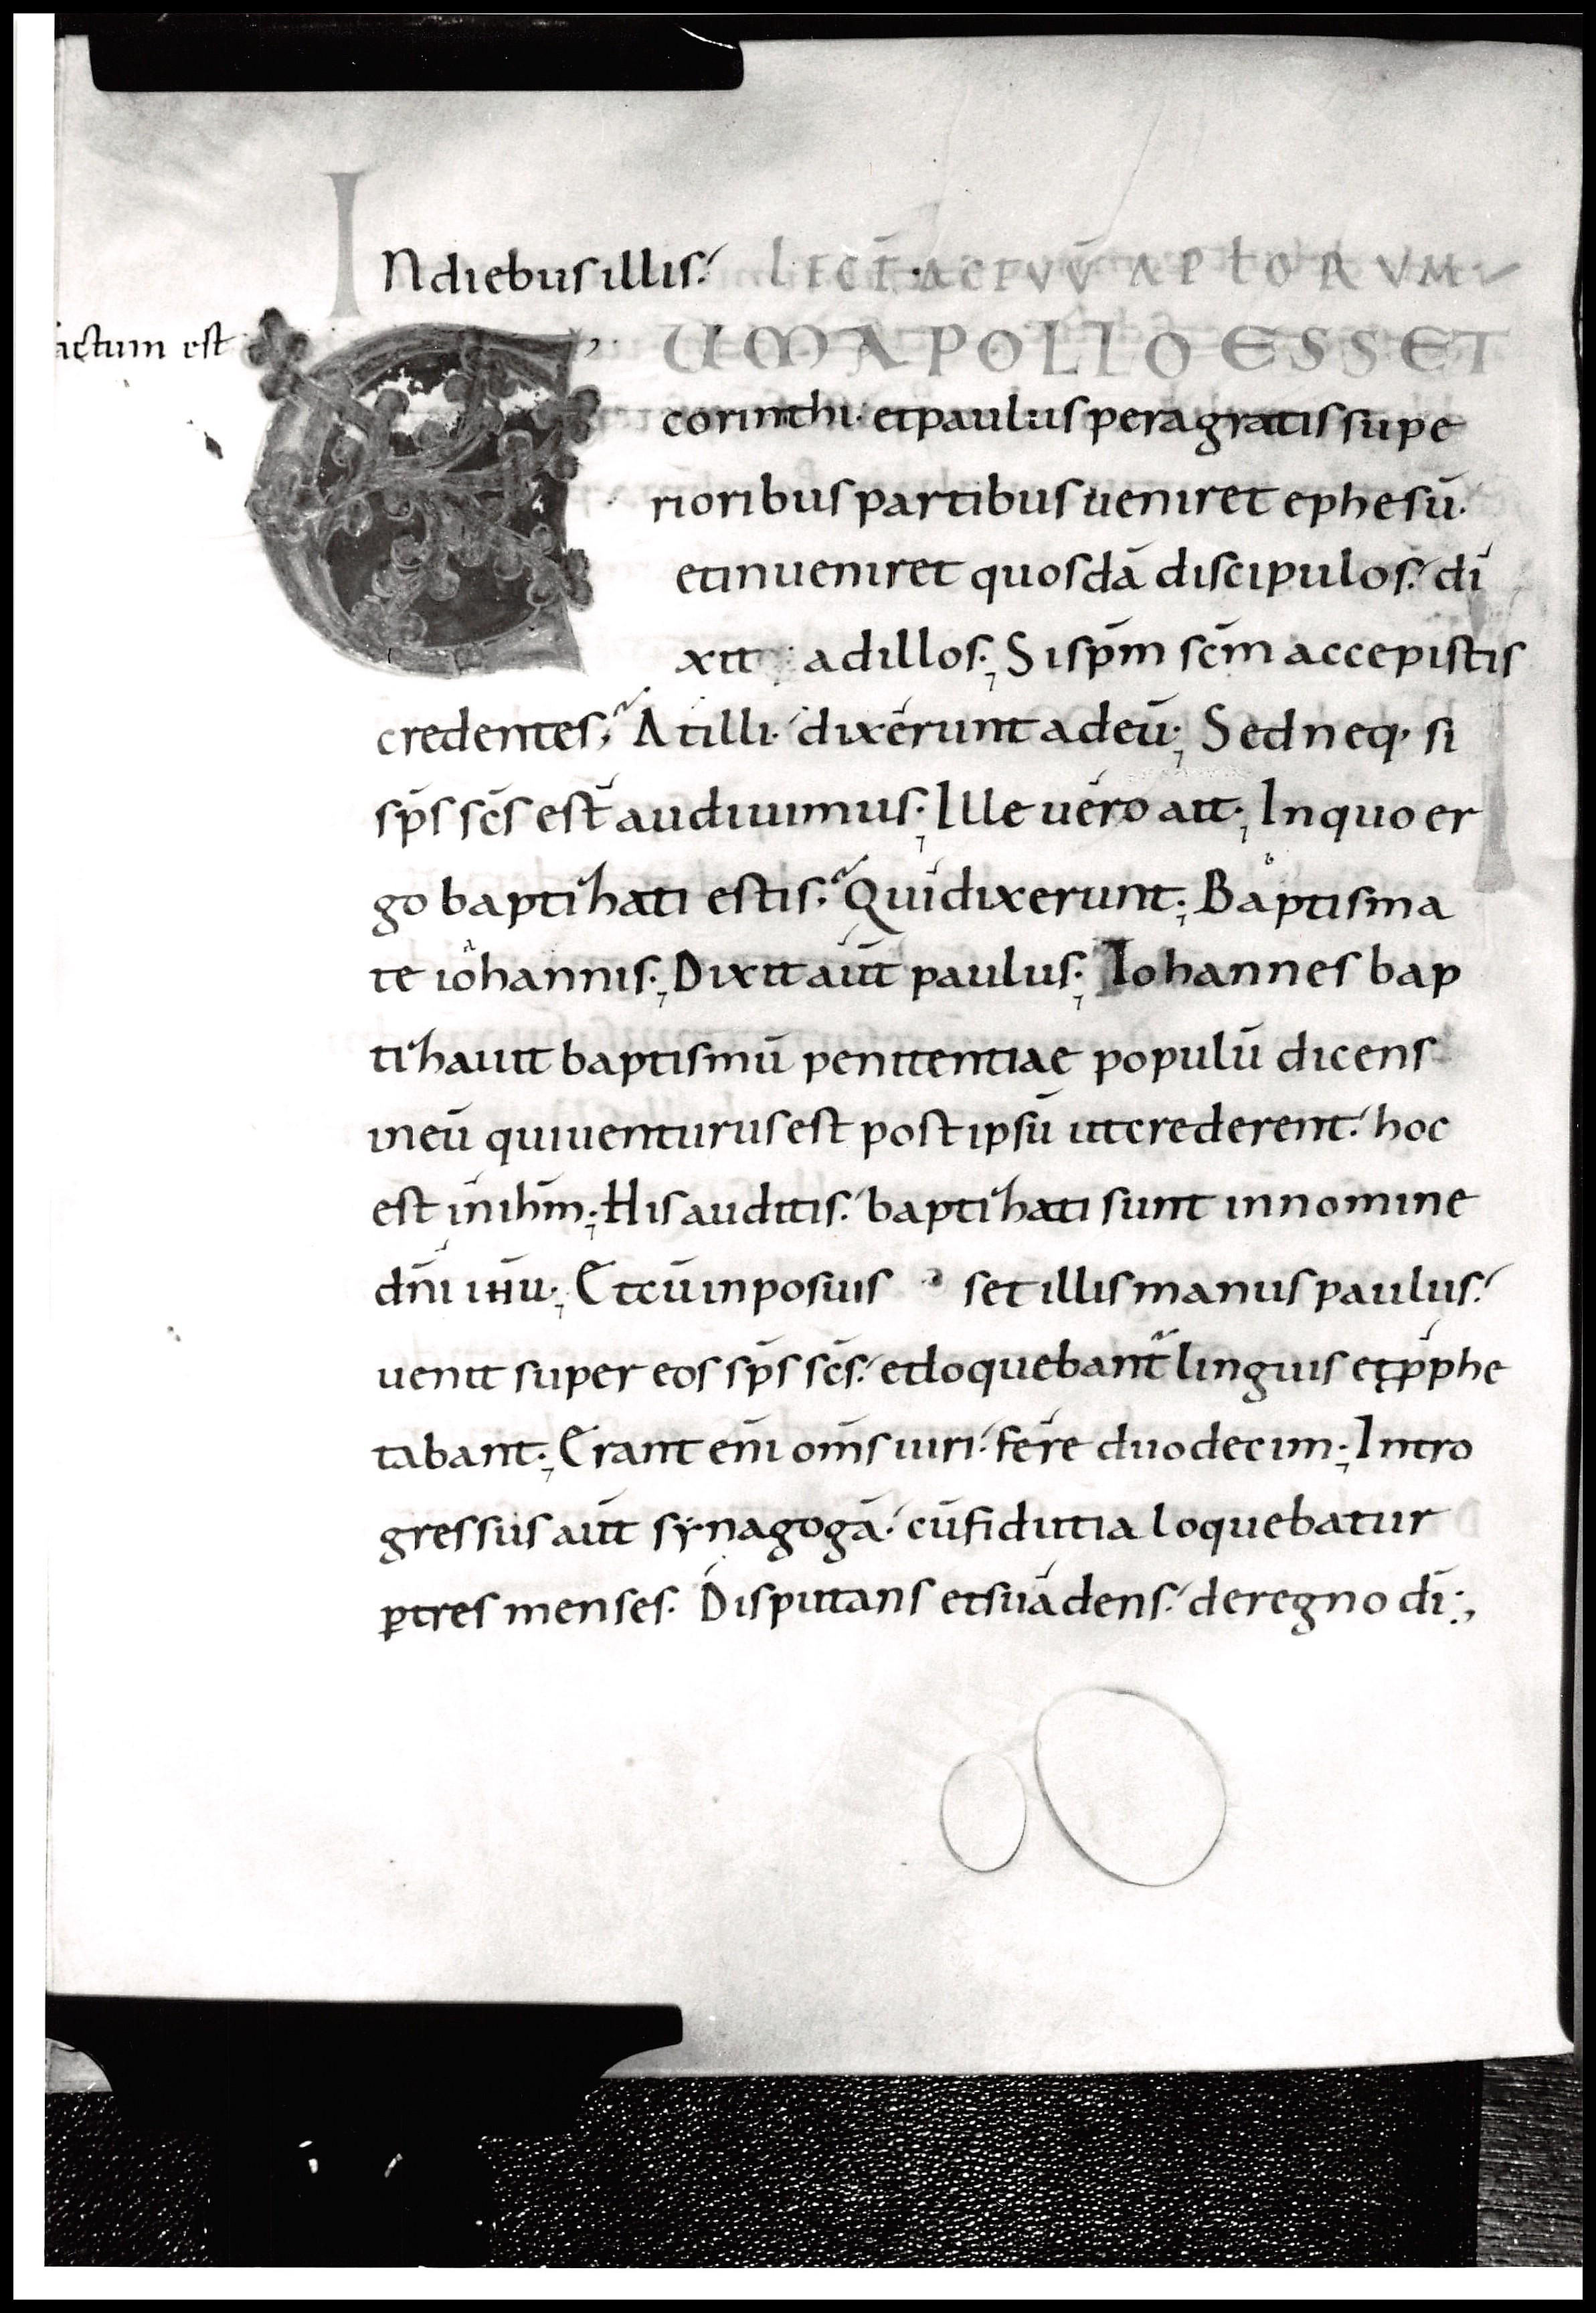 In diebus illis. LECT ACTUU APTORUM
factum est
CUM APOLLO ESSET
corinthi. et paulus peragratis supe
rioribus partibus ueniret ephesū.
et inueniret quosdā discipulos. di
xit ad illos. Si sp̄m sc̄m accepistis
credentes, At illi. dixerunt ad eū. Sed neq. si
sp̄s sc̄s est audiuimus. Ille uero ait. In quo er
go baptihati estis. Qui dixerunt. Baptisma
te iohannis. Dixit aūt paulus. Iohannes bap
tihauit baptismū penitentiae populū dicens
in eū qui uenturus est post ipsū ut crederent. hoc
est in ih̄m. His auditis. baptihati sunt in nomine
dn̄i ih̄u. Et cū inposuis set illis manus paulus.
uenit super eos sp̄s sc̄s. et loquebant̄ linguis et p̄phe
tabant. Erant eni om̄s uiri. fere duodecim. Intro
gressus aūt synagogā. cū fiducia loquebatur
ꝑ tres menses. Disputans et suadens. de regno dī.,